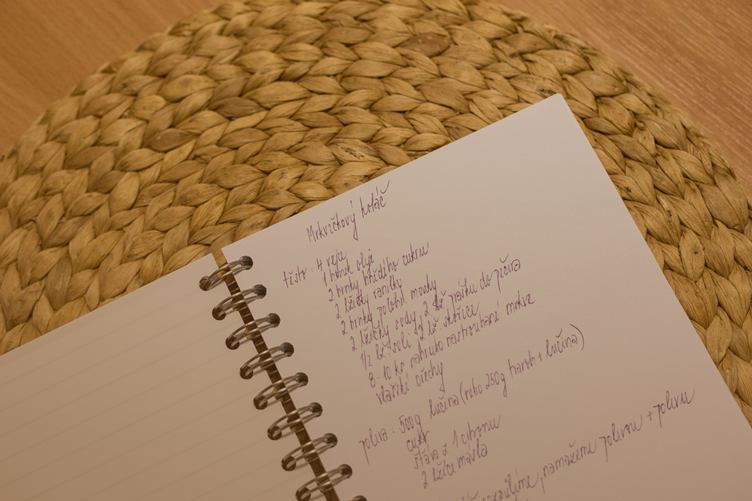 Mrkvičkový koláč
těsto 4 vejce
1 hrnek oleje
2 hrnky hnědého cukru
2 lžičky vanilka
2 hrnky polohr. mouky
2 lžičky sody, 2 lž prášku do pečiva
1/2 lž soli, 2 lž skořice
8-10 ks nahrubo nastrouhané mrkve
vlašské ořechy
poliva: 500g lučina (nebo 250g tvaroh + lučina)
cukr
šťáva z 1 citronu
2 lžíce másla
namažeme polivou + polivu